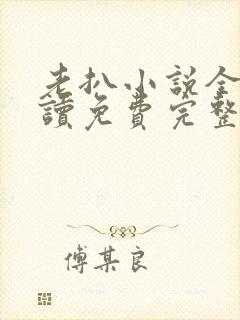 老扒小说全
讀免費完整
傅某良